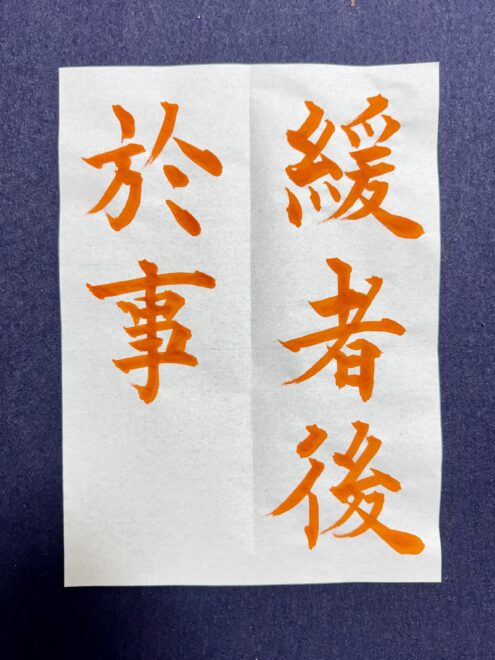 緩者後
於事